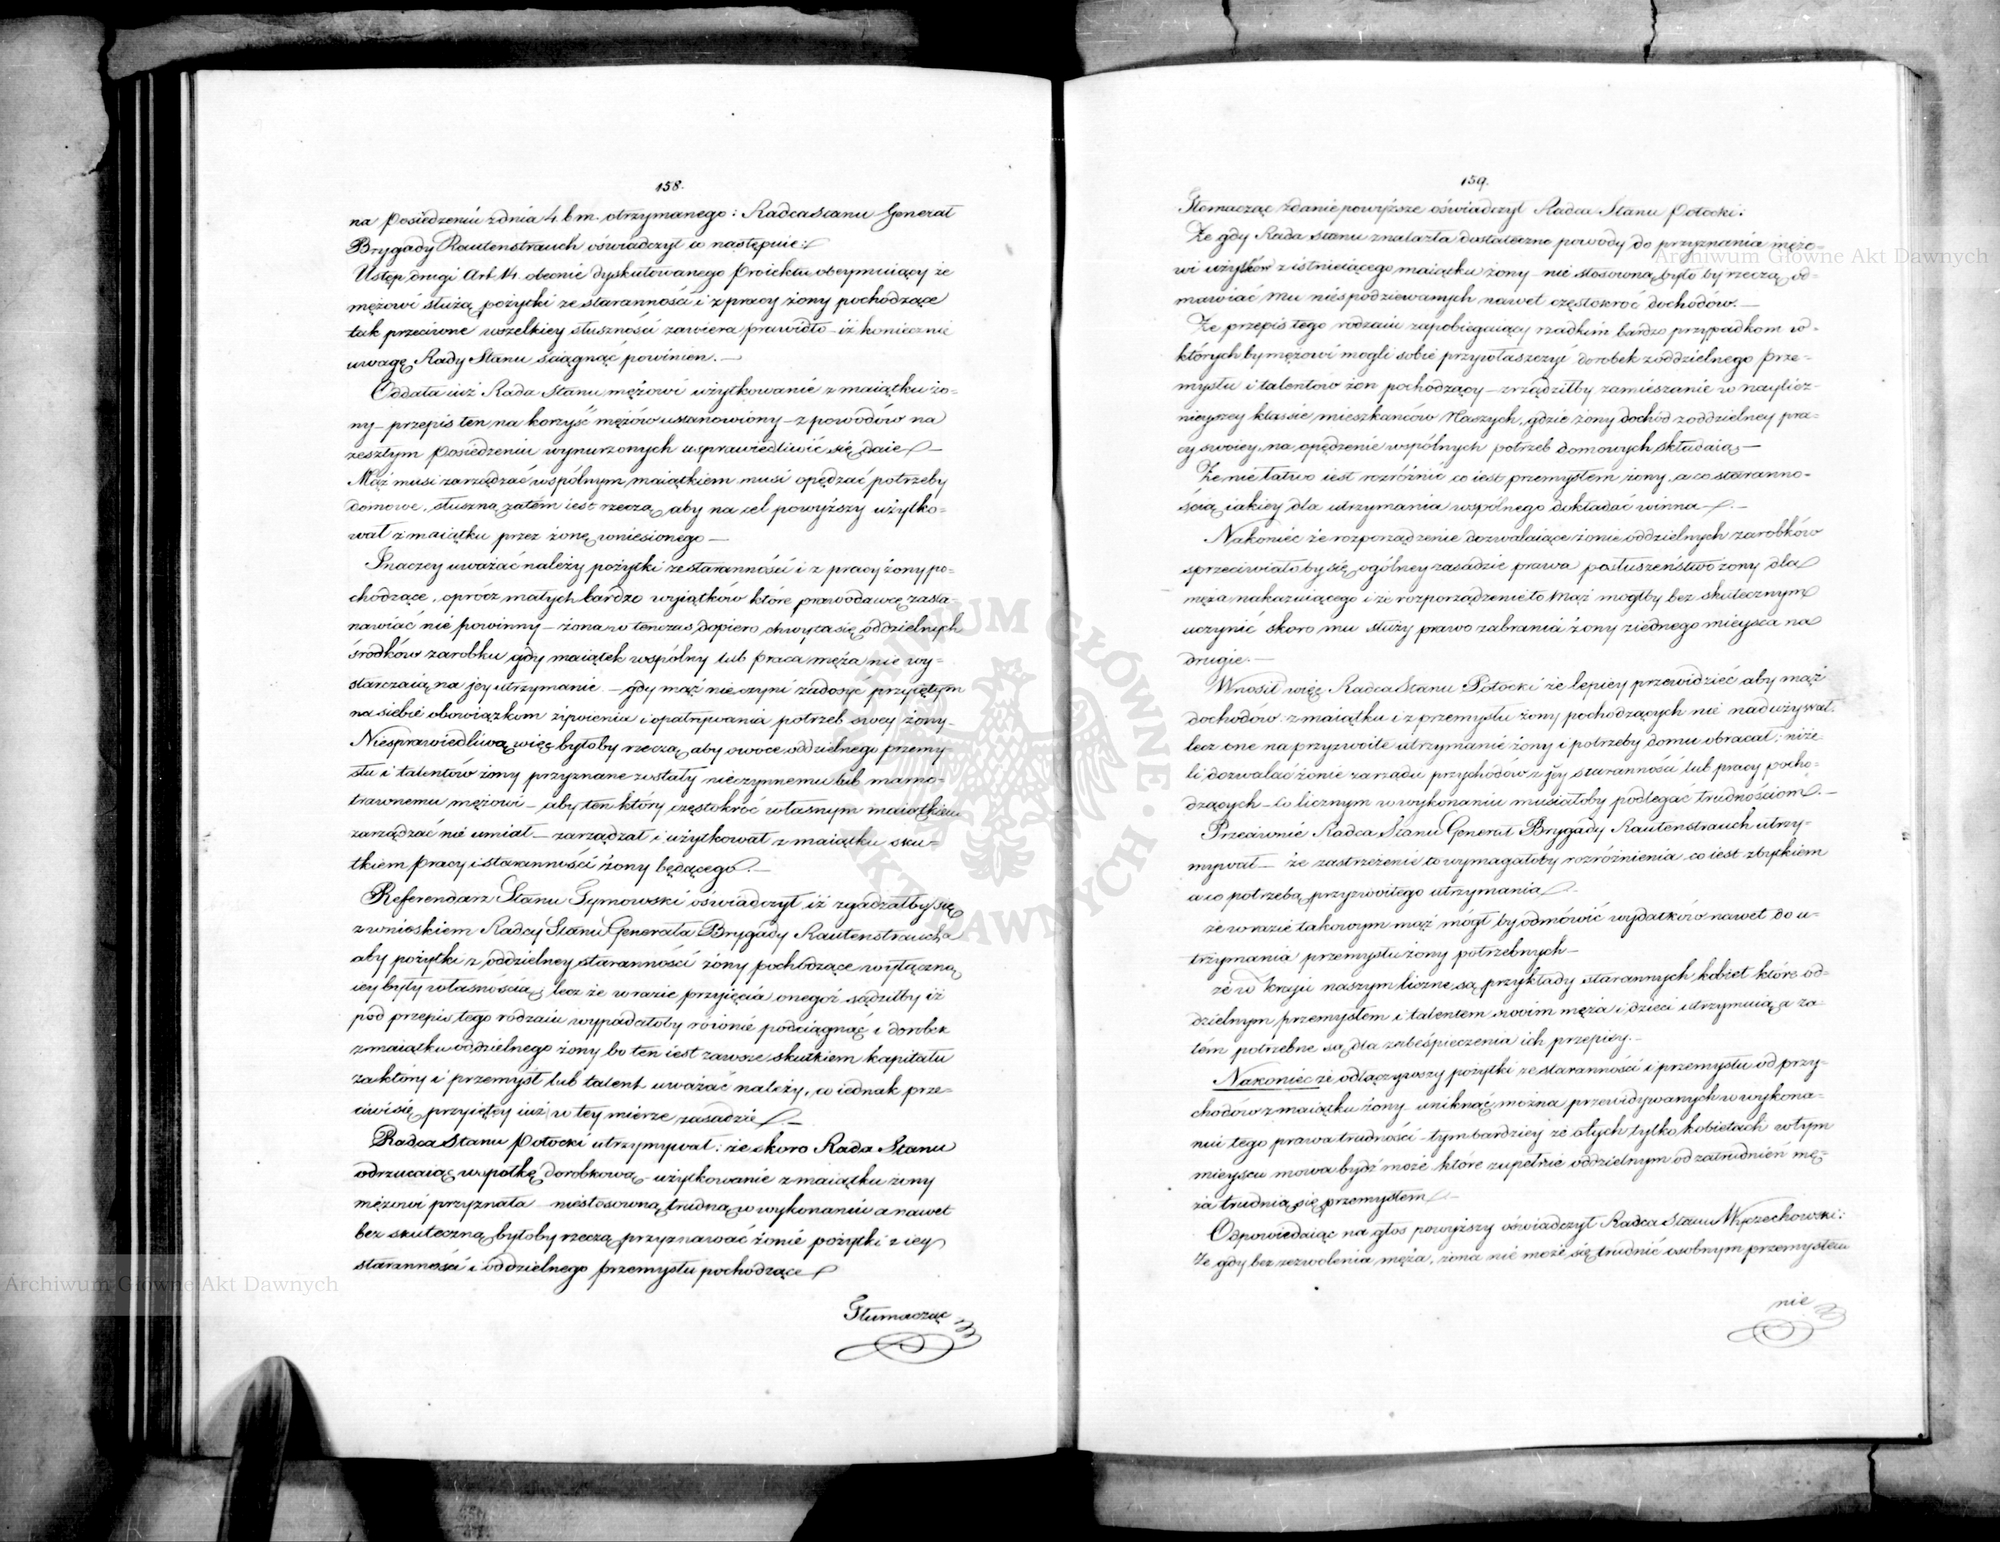 158.
na Posiedzeniu z dnia 4. b m. otrzymanego: Radca Stanu Generał
Brygady Rautenstrauch oświadczył co następuie:
Ustęp drugi Art. 14. obecnie dyskutowanego Proiektu obeymuiący że
mężowi służą pożytki ze staranności i z pracy żony pochodzące
tak przeciwne wszelkiey słuszności zawiera prawidło – iż koniecznie
uwagę Rady Stanu ściągnąć powinien. —
Oddała iuż Rada Stanu mężowi użytkowanie z maiątku żo-
ny – przepis ten na korzyść mężów ustanowiony – z powodów na
zeszłym Posiedzeniu wynurzonych usprawiedliwić się daie —
Mąż musi zarządzać wspólnym maiątkiem musi opędzać potrzeby
domowe, słuszną zatém iest rzeczą aby na cel powyższy użytko-
wał z maiątku przez żonę wniesionego —
Inaczey uważać należy pożytki ze staranności i z pracy żony po-
chodzące, oprócz małych bardzo wyiątków które prawodawcę zasta-
nawiać nie powinny – żona w tenczas dopiero chwyta się oddzielnych
środków zarobku gdy maiątek wspólny lub praca męża nie wy-
starczaią na jey utrzymanie – gdy mąż nie czyni zadosyć przyiętym
na siebie obowiązkom żywienia i opatrywania potrzeb swey żony –
Niesprawiedliwą więc byłoby rzeczą aby owoce oddzielnego przemy-
słu i talentów żony przyznane zostały nieczynnemu lub marno-
trawnemu mężowi – aby ten który częstokroć własnym maiątkiem
zarządzać nie umiał – zarządzał i użytkował z maiątku sku-
tkiem pracy i staranności żony będącego. —
Referendarz Stanu Tymowski oświadczył iż zgadzałby się
z wnioskiem Radcy Stanu Generała Brygady Rautenstraucha
aby pożytki z oddzielney staranności żony pochodzące wyłączną
iey były własnością; lecz że w razie przyięcia onegoż sądziłby iż
pod przepis tego rodzaiu wypadałoby rownie podciągnąć i dorobek
z maiątku oddzielnego żony bo ten iest zawsze skutkiem kapitału
za który i przemysł lub talent uważać należy, co iednak prze-
ciwi się przyiętey iuż w tey mierze zasadzie. —
Radca Stanu Potocki utrzymywał: że skoro Rada Stanu
odrzucaiąc wspołkę dorobkową użytkowanie z maiątku żony
mężowi przyznała – niestosowną trudną w wykonaniu a nawet
bez skuteczną byłoby rzeczą przyznawać żonie pożytki z iey
staranności i oddzielnego przemysłu pochodzące
Tłumacząc
159.
Tłomacząc zdanie powyższe oświadczył Radca Stanu Potocki:
Że gdy Rada Stanu znalazła dostateczne powody do przyznania mężo-
wi użytków z istnieiącego maiątku żony – nie stosowną było by rzeczą od-
mawiać mu niespodziewanych nawet częstokroć dochodów. —
Że przepis tego rodzaiu zapobiegaiący rzadkim bardzo przypadkom w
których by mężowi mogli sobie przywłaszczyć dorobek z oddzielnego prze-
mysłu i talentów żon pochodzący – zrządziłby zamieszanie w naylicz-
nieyszey klassie mieszkańców Naszych, gdzie żony dochód z oddzielney pra-
cy swoiey, na opędzenie wspólnych potrzeb domowych składaią —
Że nie łatwo iest rozróżnić co iest przemysłem żony, a co staranno-
ścią iakiey dla utrzymania wspólnego dokładać winna. —
Nakoniec że rozporządzenie dozwalaiące żonie oddzielnych zarobków
sprzeciwiałoby się ogólney zasadzie prawa posłuszeństwo żony dla
męża nakazuiącego i że rozporządzenie to Mąż mógłby bez skutecznym
uczynić skoro mu służy prawo zabrania żony z iednego mieysca na
drugie. —
Wnosił więc Radca Stanu Potocki że lepiey przewidzieć aby mąż
dochodów z maiątku i z przemysłu żony pochodzących nie nadużywał.
lecz one na przyzwoite utrzymanie żony i potrzeby domu obracał; niże-
li dozwalać żonie zarządu przychodów z jey staranności lub pracy pocho-
dzących – co licznym w wykonaniu musiałoby podlegać trudnościom. —
Przeciwnie Radca Stanu Generał Brygady Rautenstrauch utrzy-
mywał – że zastrzeżenie to wymagałoby rozróżnienia co iest zbytkiem
a co potrzebą przyzwoitego utrzymania
że w razie takowym mąż mógł by odmówić wydatków nawet do u-
trzymania przemysłu żony potrzebnych —
że w kraju naszym liczne są przykłady starannych kobiet które od-
dzielnym przemysłem i talentem swoim męża i dzieci utrzymuią a za-
tém potrzebne są dla zabeśpieczenia ich przepisy. —
Nakoniec że odłączywszy pożytki ze staranności i przemysłu od przy-
chodów z maiątku żony uniknąć można przewidywanych w wykona-
niu tego prawa trudności – tym bardziey że o tych tylko kobietach w tym
mieyscu mowa bydź może które zupełnie oddzielnym od zatrudnień mę-
ża trudnią się przemysłem —
Odpowiedaiąc na głos powyższy oświadczył Radca Stanu Wyczechowski:
Że gdy bez zezwolenia męża, żona nie może się trudnić osobnym przemysłem
nie
ARCHIWUM GŁÓWNE AKT DAWNYCH
Archiwum Główne Akt Dawnych
Archiwum Główne Akt Dawnych